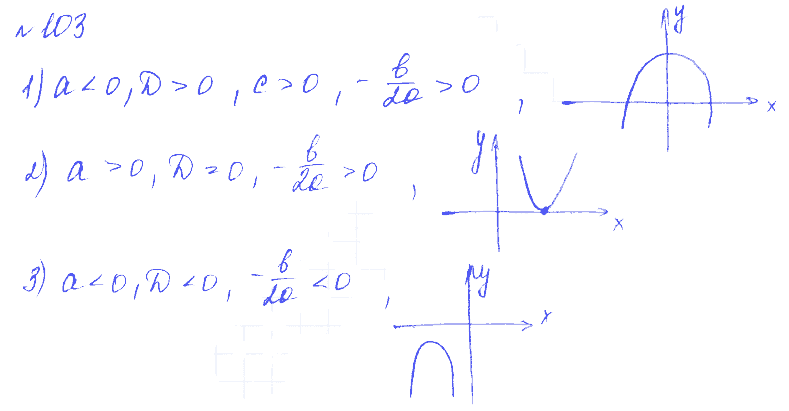 №103
y
1) a < 0, D > 0, c > 0, -b/2a > 0,
x
y
2) a > 0, D = 0, -b/2a > 0,
x
y
3) a < 0, D < 0, -b/2a < 0,
x